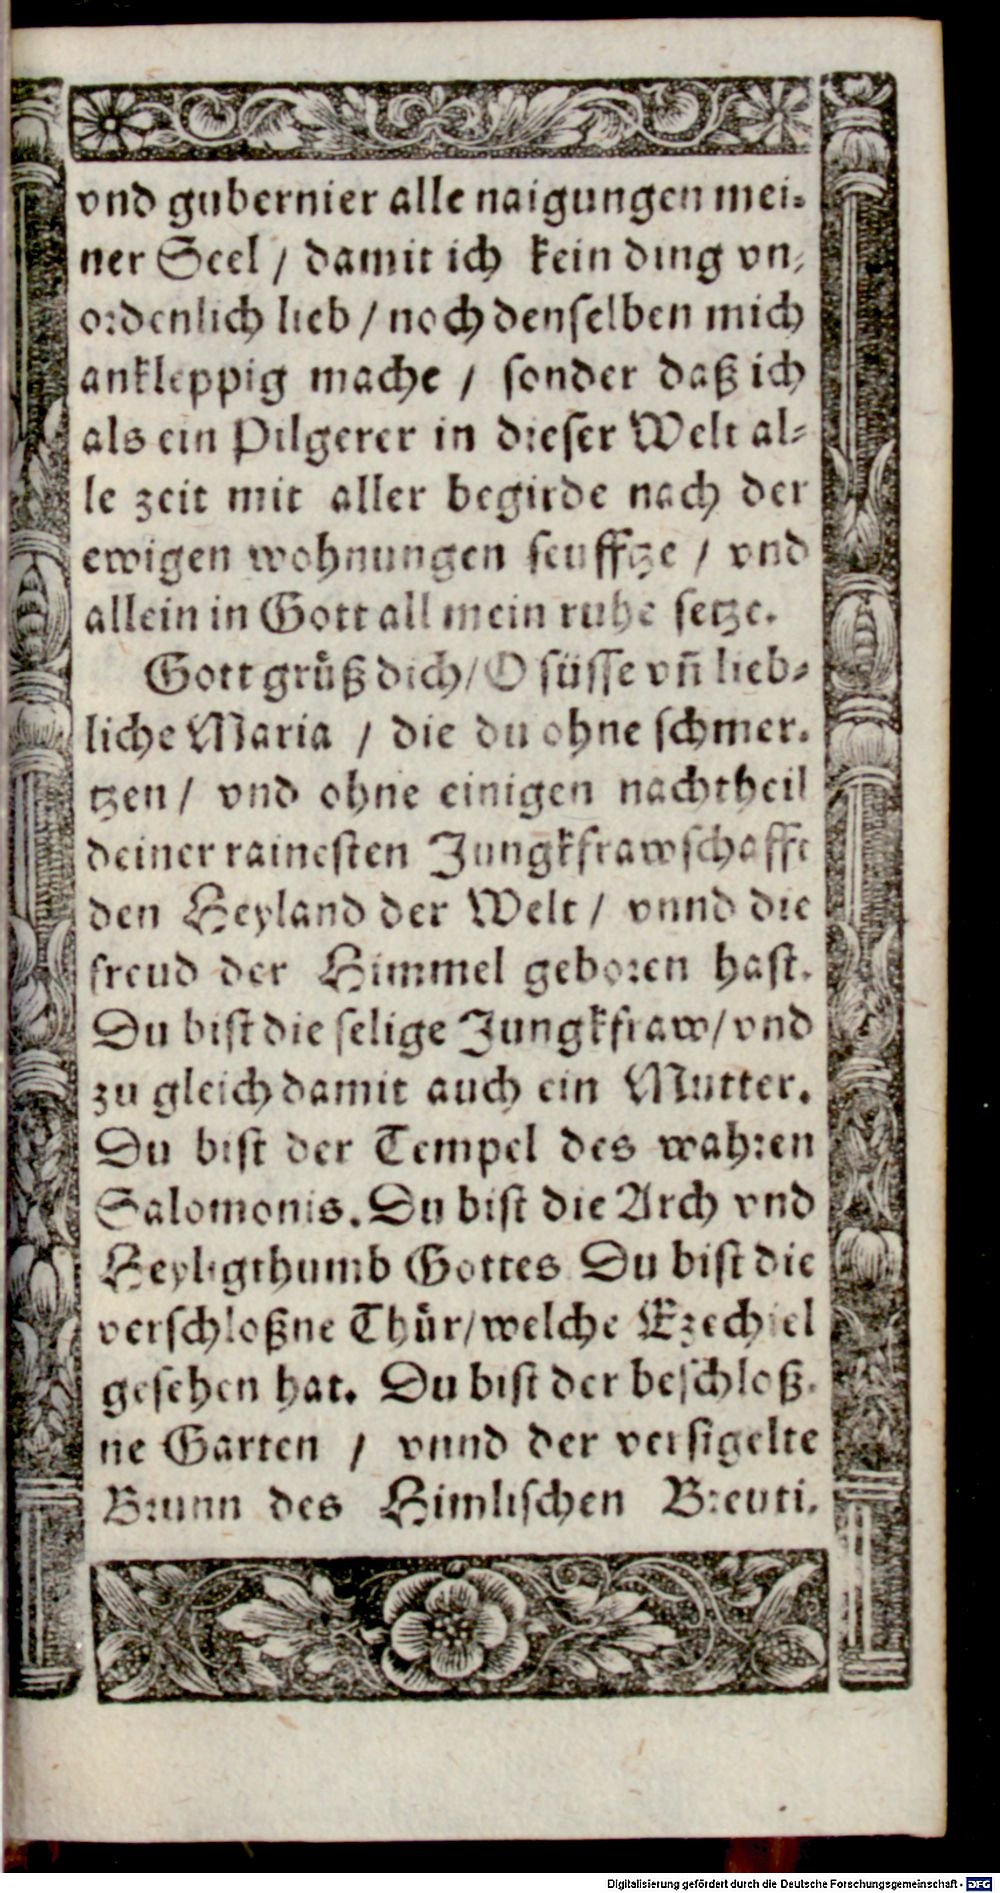 vnd gubernier alle naigungen mei-
ner Seel / damit ich kein ding vn-
ordenlich lieb / noch denselben mich
ankleppig mache / sonder daß ich
als ein Pilgerer in dieser Welt al-
le zeit mit aller begirde nach der
ewigen wohnungen seufftze / vnd
allein in Gott all mein ruhe setze.
Gott grüß dich / O süsse vñ lieb-
liche Maria / die du ohne schmer-
tzen / vnd ohne einigen nachtheil
deiner rainesten Jungkfrawschafft
den Heyland der Welt / vnnd die
freud der Himmel geboren hast.
Du bist die selige Jungkfraw / vnd
zu gleich damit auch ein Mutter.
Du bist der Tempel des wahren
Salomonis. Du bist die Arch vnd
Heyligthumb Gottes Du bist die
verschloßne Thür / welche Ezechiel
gesehen hat. Du bist der beschloß-
ne Garten / vnnd der versigelte
Brunn des Himlischen Breuti-
Digitalisierung gefördert durch die Deutsche Forschungsgemeinschaft - DFG